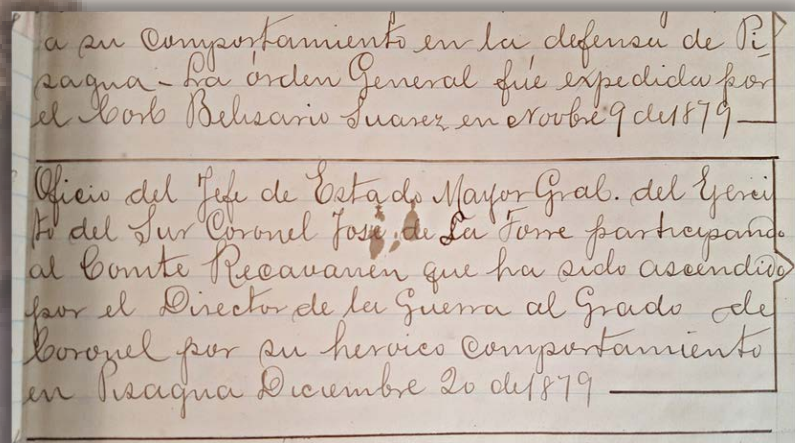 a su comportamiento en la defensa de Pi-
sagua - La órden General fué expedida por
el Corl Belisario Suarez en Novbre 9 de 1879
Oficio del Jefe de Estado Mayor Gral. del Ejerci
to del Sur Coronel José de La Torre participando
al Comte Recavarren que ha sido ascendido
por el Director de la Guerra al Grado de
Coronel por su heroico comportamiento
en Pisagua Diciembre 20 de 1879